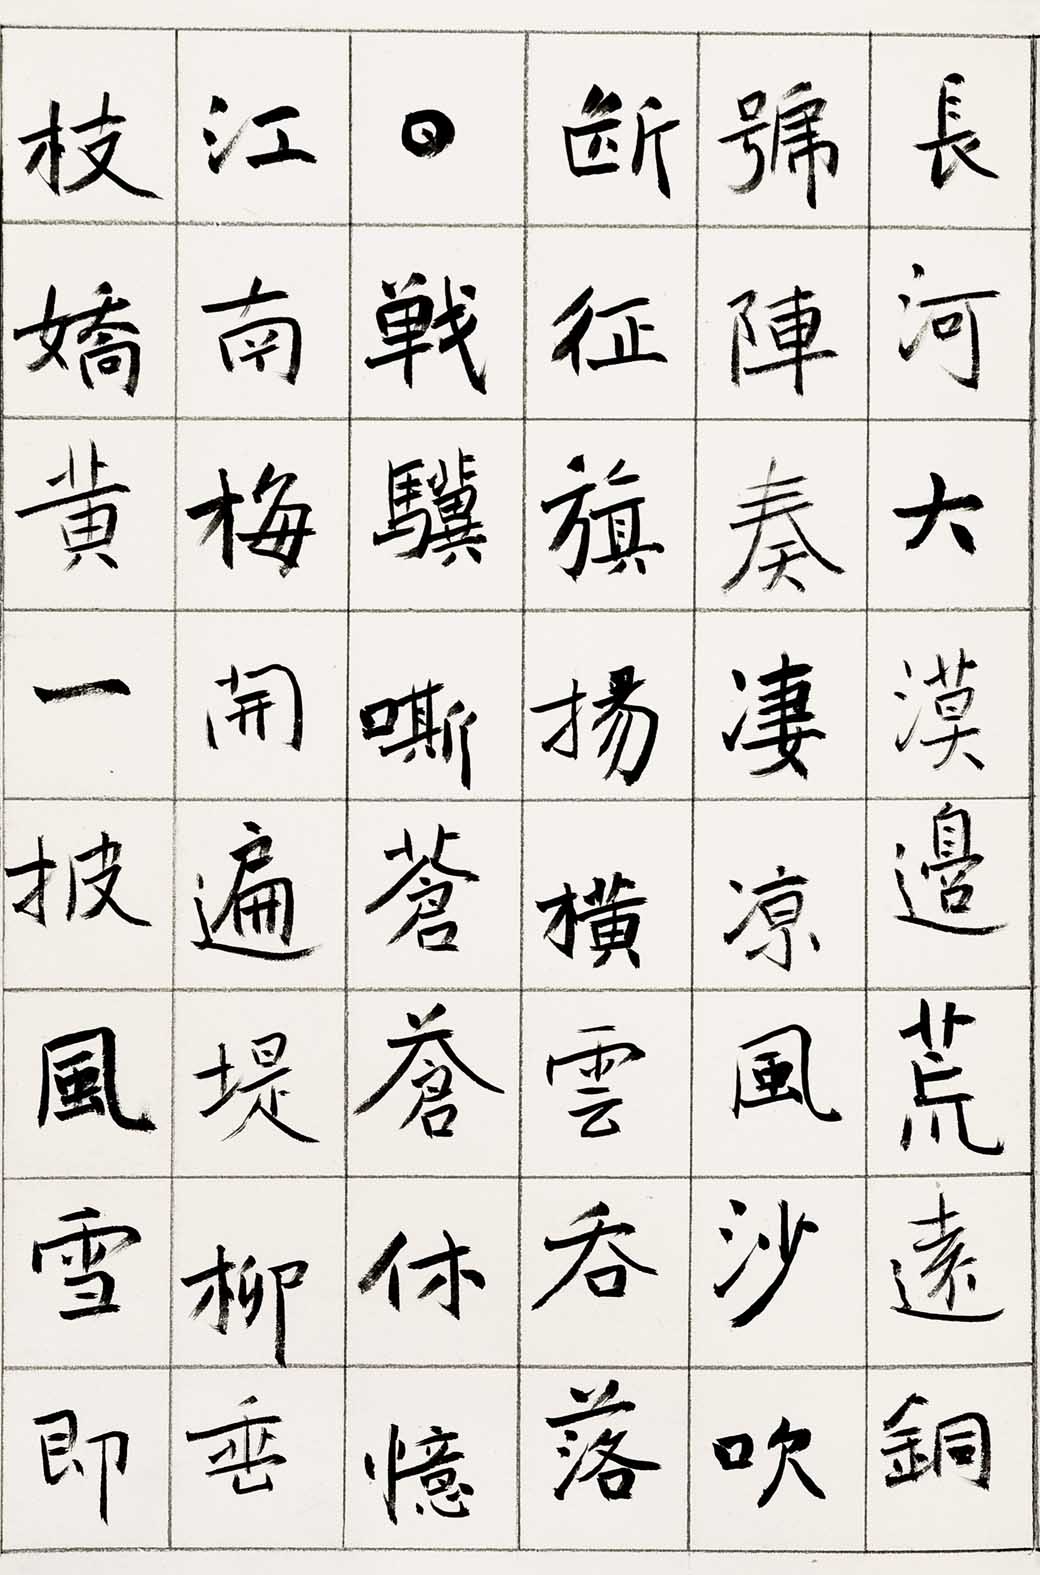 長河大漠邊荒遠銅
號陣奏淒凉風沙吹
斷征旗揚橫雲吞落
日戰驥嘶蒼蒼休憶
江南梅開遍堤柳垂
枝嬌黃一披風雪即